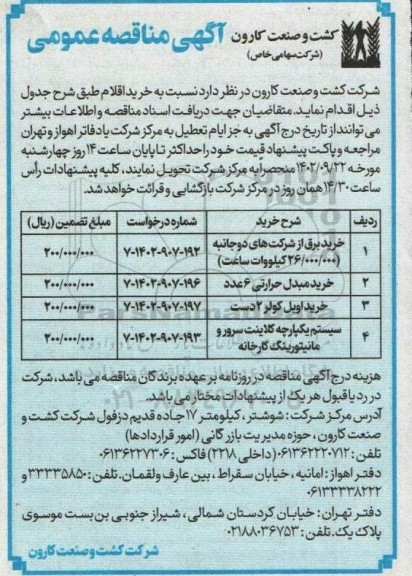 آگهی مناقصه عمومی
کشت و صنعت کارون
(شرکت سهامی خاص)
شرکت کشت و صنعت کارون در نظر دارد نسبت به خرید اقلام طبق شرح جدول
ذیل اقدام نماید. متقاضیان جهت دریافت اسناد مناقصه و اطلاعات بیشتر
می توانند از تاریخ درج آگهی به جز ایام تعطیل به مرکز شرکت یا دفاتر اهواز و تهران
مراجعه و پاکت پیشنهاد قیمت خود را حداکثر تا پایان ساعت ۱۴ روز چهارشنبه
مورخه ۱۴۰۲/۰۹/۲۲ منحصراً به مرکز شرکت تحویل نمایند، کلیه پیشنهادات رأس
ساعت ۱۴/۳۰ همان روز در مرکز شرکت بازگشایی و قرائت خواهد شد.
ردیف شرح خرید شماره درخواست مبلغ تضمین (ریال)
۱ خرید برق از شرکت های دوجانبه (۲۶/۰۰۰/۰۰۰ کیلووات ساعت) ۷-۱۴۰۲-۹۰۷-۱۹۲ ۲۰۰/۰۰۰/۰۰۰
۲ خرید مبدل حرارتی ۶ عدد ۷-۱۴۰۲-۹۰۷-۱۹۶ ۲۰۰/۰۰۰/۰۰۰
۳ خرید اویل کولر ۲ دست ۷-۱۴۰۲-۹۰۷-۱۹۷ ۲۰۰/۰۰۰/۰۰۰
۴ سیستم یکپارچه کلاینت سرور و مانیتورینگ کارخانه ۷-۱۴۰۲-۹۰۷-۱۹۳ ۲۰۰/۰۰۰/۰۰۰
هزینه درج آگهی مناقصه در روزنامه بر عهده برندگان مناقصه می باشد، شرکت
در رد یا قبول هر یک از پیشنهادات مختار می باشد.
آدرس مرکز شرکت: شوشتر، کیلومتر ۱۷ جاده قدیم دزفول شرکت کشت و
صنعت کارون، حوزه مدیریت بازرگانی (امور قراردادها)
تلفن: ۰۶۱۳۶۲۲۰۷۱۲ (داخلی ۲۲۱۸) فاکس: ۰۶۱۳۶۲۲۷۳۰۶
دفتر اهواز: امانیه، خیابان سقراط، بین عارف و لقمان. تلفن: ۳۳۳۳۵۸۵۰ و
۰۶۱۳۳۳۳۸۲۲۲
دفتر تهران: خیابان کردستان شمالی، شیراز جنوبی بن بست موسوی
پلاک یک. تلفن: ۰۲۱۸۸۰۳۶۷۵۳
شرکت کشت و صنعت کارون